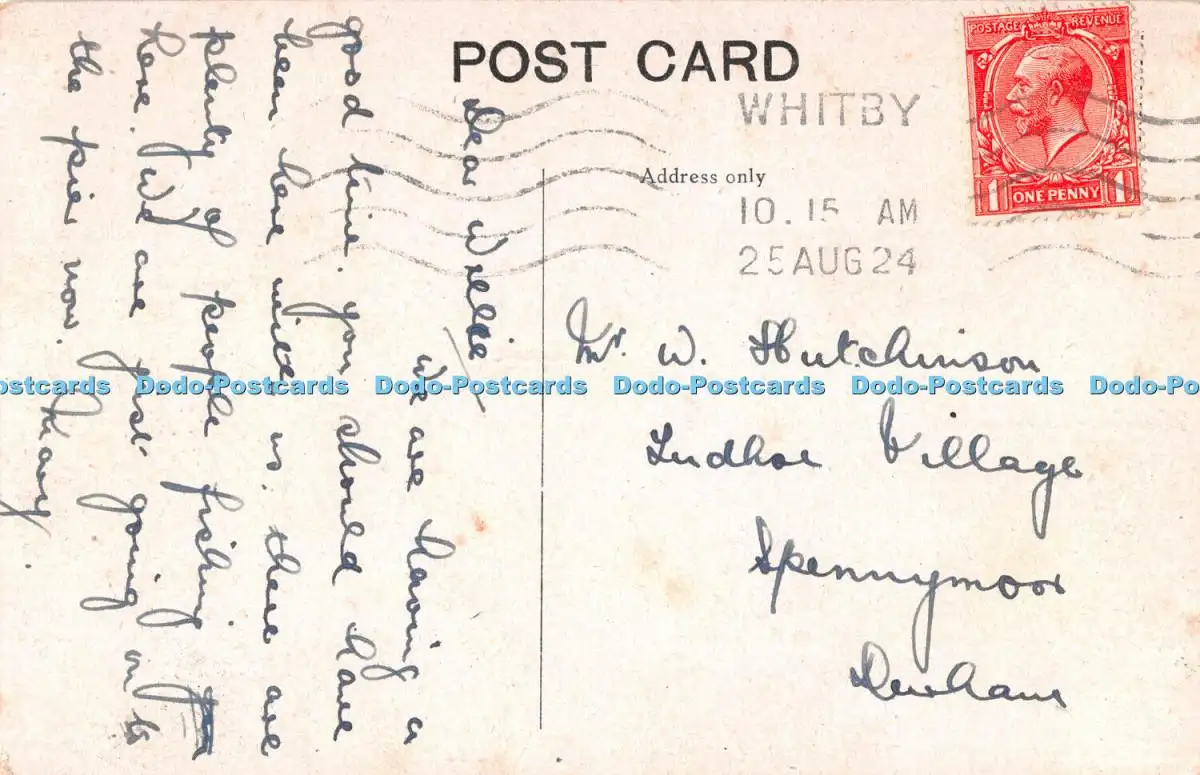 POST CARD
POSTAGE REVENUE
ONE PENNY
1 1
WHITBY
10.15 AM
25 AUG 24
Address only
Dear Willie
We are having a
good time. you should have
been here with us. there are
plenty of people fishing
here. We are just going on to
the pier now.
Mary.
Mr. W. Hutchinson
Tudhoe Village
Spennymoor
Durham
Dodo-Postcards Dodo-Postcards Dodo-Postcards Dodo-Postcards Dodo-Postcards